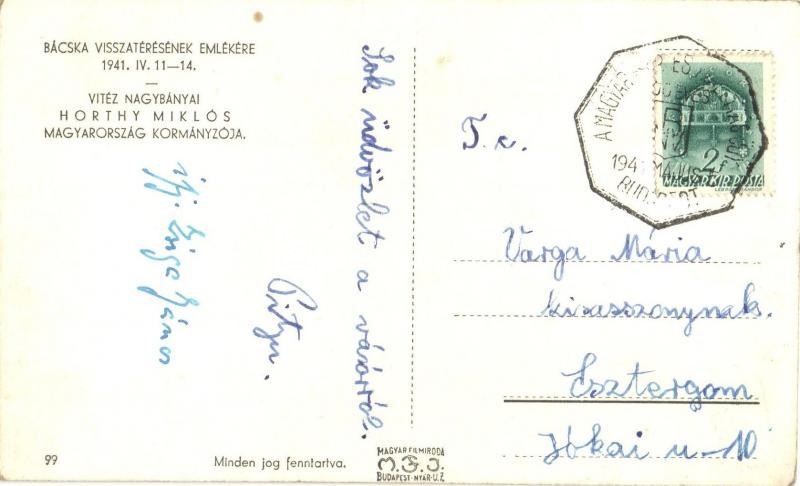 BÁCSKA VISSZATÉRÉSÉNEK EMLÉKÉRE
1941. IV. 11—14.
VITÉZ NAGYBÁNYAI
HORTHY MIKLÓS
MAGYARORSZÁG KORMÁNYZÓJA.
Sok üdvözlet a vásárról.
Pityu.
ifj. János
99
Minden jog fenntartva.
MAGYAR FILMIRODA
M.F.I.
BUDAPEST-NYÁR-U. 2
A MAGYAR
1941 MÁJUS
BUDAPEST
2f
MAGYAR KIR. POSTA
T. c.
Varga Mária
kisasszonynak.
Esztergom
Jókai u-10